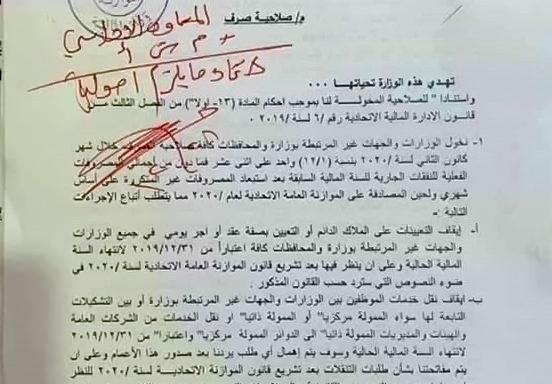 م/ صلاحية صرف
المعاون الاداري
اصوليا
تهدي هذه الوزارة تحياتها ...
واستنادا" للصلاحية المخولة لنا بموجب احكام المادة (١٣- اولا") من الفصل الثالث من
قانون الادارة المالية الاتحادية رقم /٦ لسنة ٢٠١٩/ .
١- نخول الوزارات والجهات غير المرتبطة بوزارة والمحافظات كافة صلاحية الصرف خلال شهر
كانون الثاني لسنة /٢٠٢٠ بنسبة (١٢/١) واحد على اثنى عشر فما دون من اجمالي المصروفات
الفعلية للنفقات الجارية للسنة المالية السابقة بعد استبعاد المصروفات غير المتكررة على أساس
شهري ولحين المصادقة على الموازنة العامة الاتحادية لعام /٢٠٢٠ مما يتطلب أتباع الإجراءات
التالية :-
أ- إيقاف التعيينات على الملاك الدائم أو التعيين بصفة عقد أو اجر يومي في جميع الوزارات
والجهات غير المرتبطة بوزارة والمحافظات كافة اعتباراً من ٢٠١٩/١٢/٣١ لانتهاء السنة
المالية الحالية وعلى ان ينظر فيها بعد تشريع قانون الموازنة العامة الاتحادية لسنة /٢٠٢٠ في
ضوء النصوص التي سترد حسب القانون المذكور .
ب- إيقاف نقل خدمات الموظفين بين الوزارات والجهات غير المرتبطة بوزارة أو بين التشكيلات
التابعة لها سواء الممولة مركزيا" أو الممولة ذاتيا" او نقل الخدمات من الشركات العامة
والهيئات والمديريات الممولة ذاتيا" الى الدوائر الممولة مركزيا" واعتبارا" من ٢٠١٩/١٢/٣١
لانتهاء السنة المالية الحالية وسوف يتم إهمال أي طلب يردنا بعد صدور هذا الأعمام وعلى ان
يتم مفاتحتنا بشأن طلبات التنقلات بعد تشريع قانون الموازنة الاتحادية لسنة /٢٠٢٠ للنظر